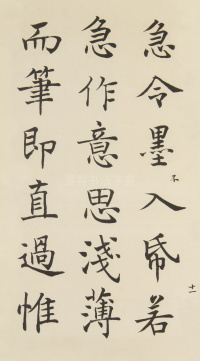 急令墨不入帋若
急作意思淺薄
而筆即直過惟
十一